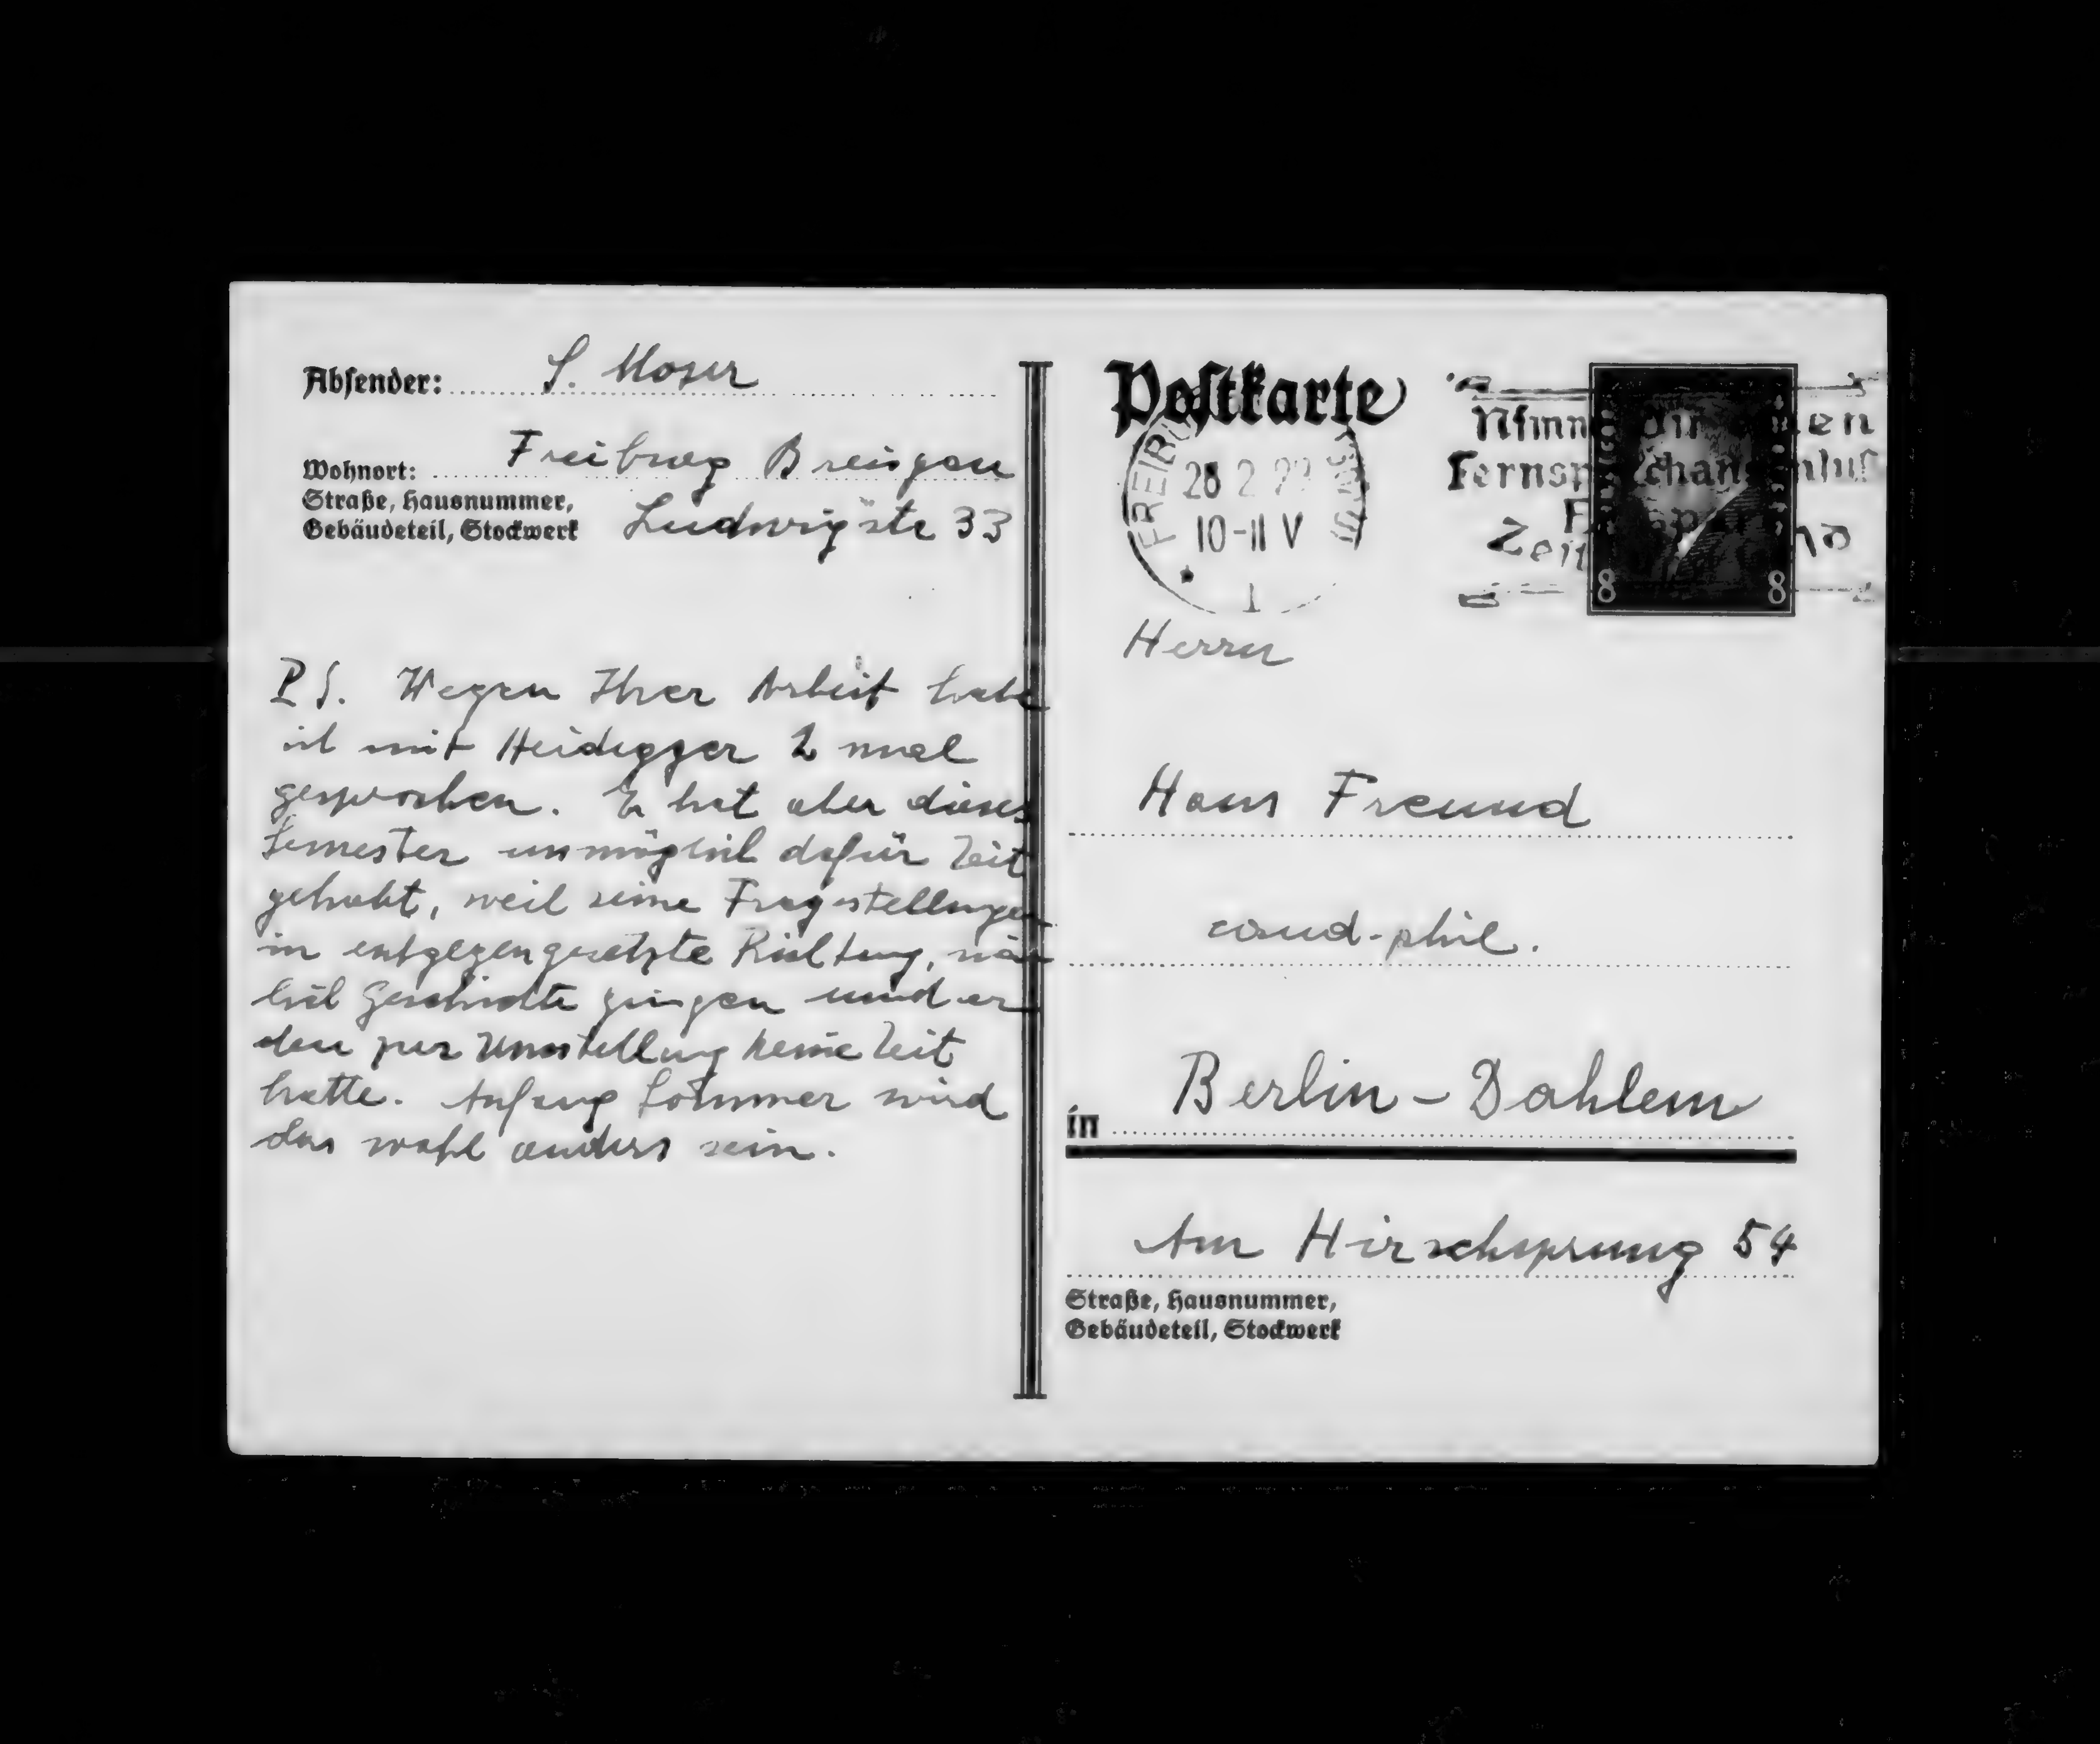 Absender: S. Moser
Wohnort: Freiburg Breisgau
Straße, Hausnummer,
Gebäudeteil, Stockwerk Ludwigstr 33
P S. Wegen Ihrer Arbeit habe
ich mit Heidegger 2 mal
gesprochen. Er hat aber dieses
Semester unmöglich dafür Zeit
gehabt, weil seine Fragestellungen
in entgegengesetzte Richtung, näm
lich Geschichte gingen und er
den zur Umstellung keine Zeit
hatte. Anfang Sommer wird
das wohl anders sein.
Postkarte
FREIBURG
28 2 29
10-11 V
1
Fernsprechanschluß
8 8
Herrn
Hans Freund
cand. phil.
in Berlin-Dahlem
Am Hirschsprung 54
Straße, Hausnummer,
Gebäudeteil, Stockwerk